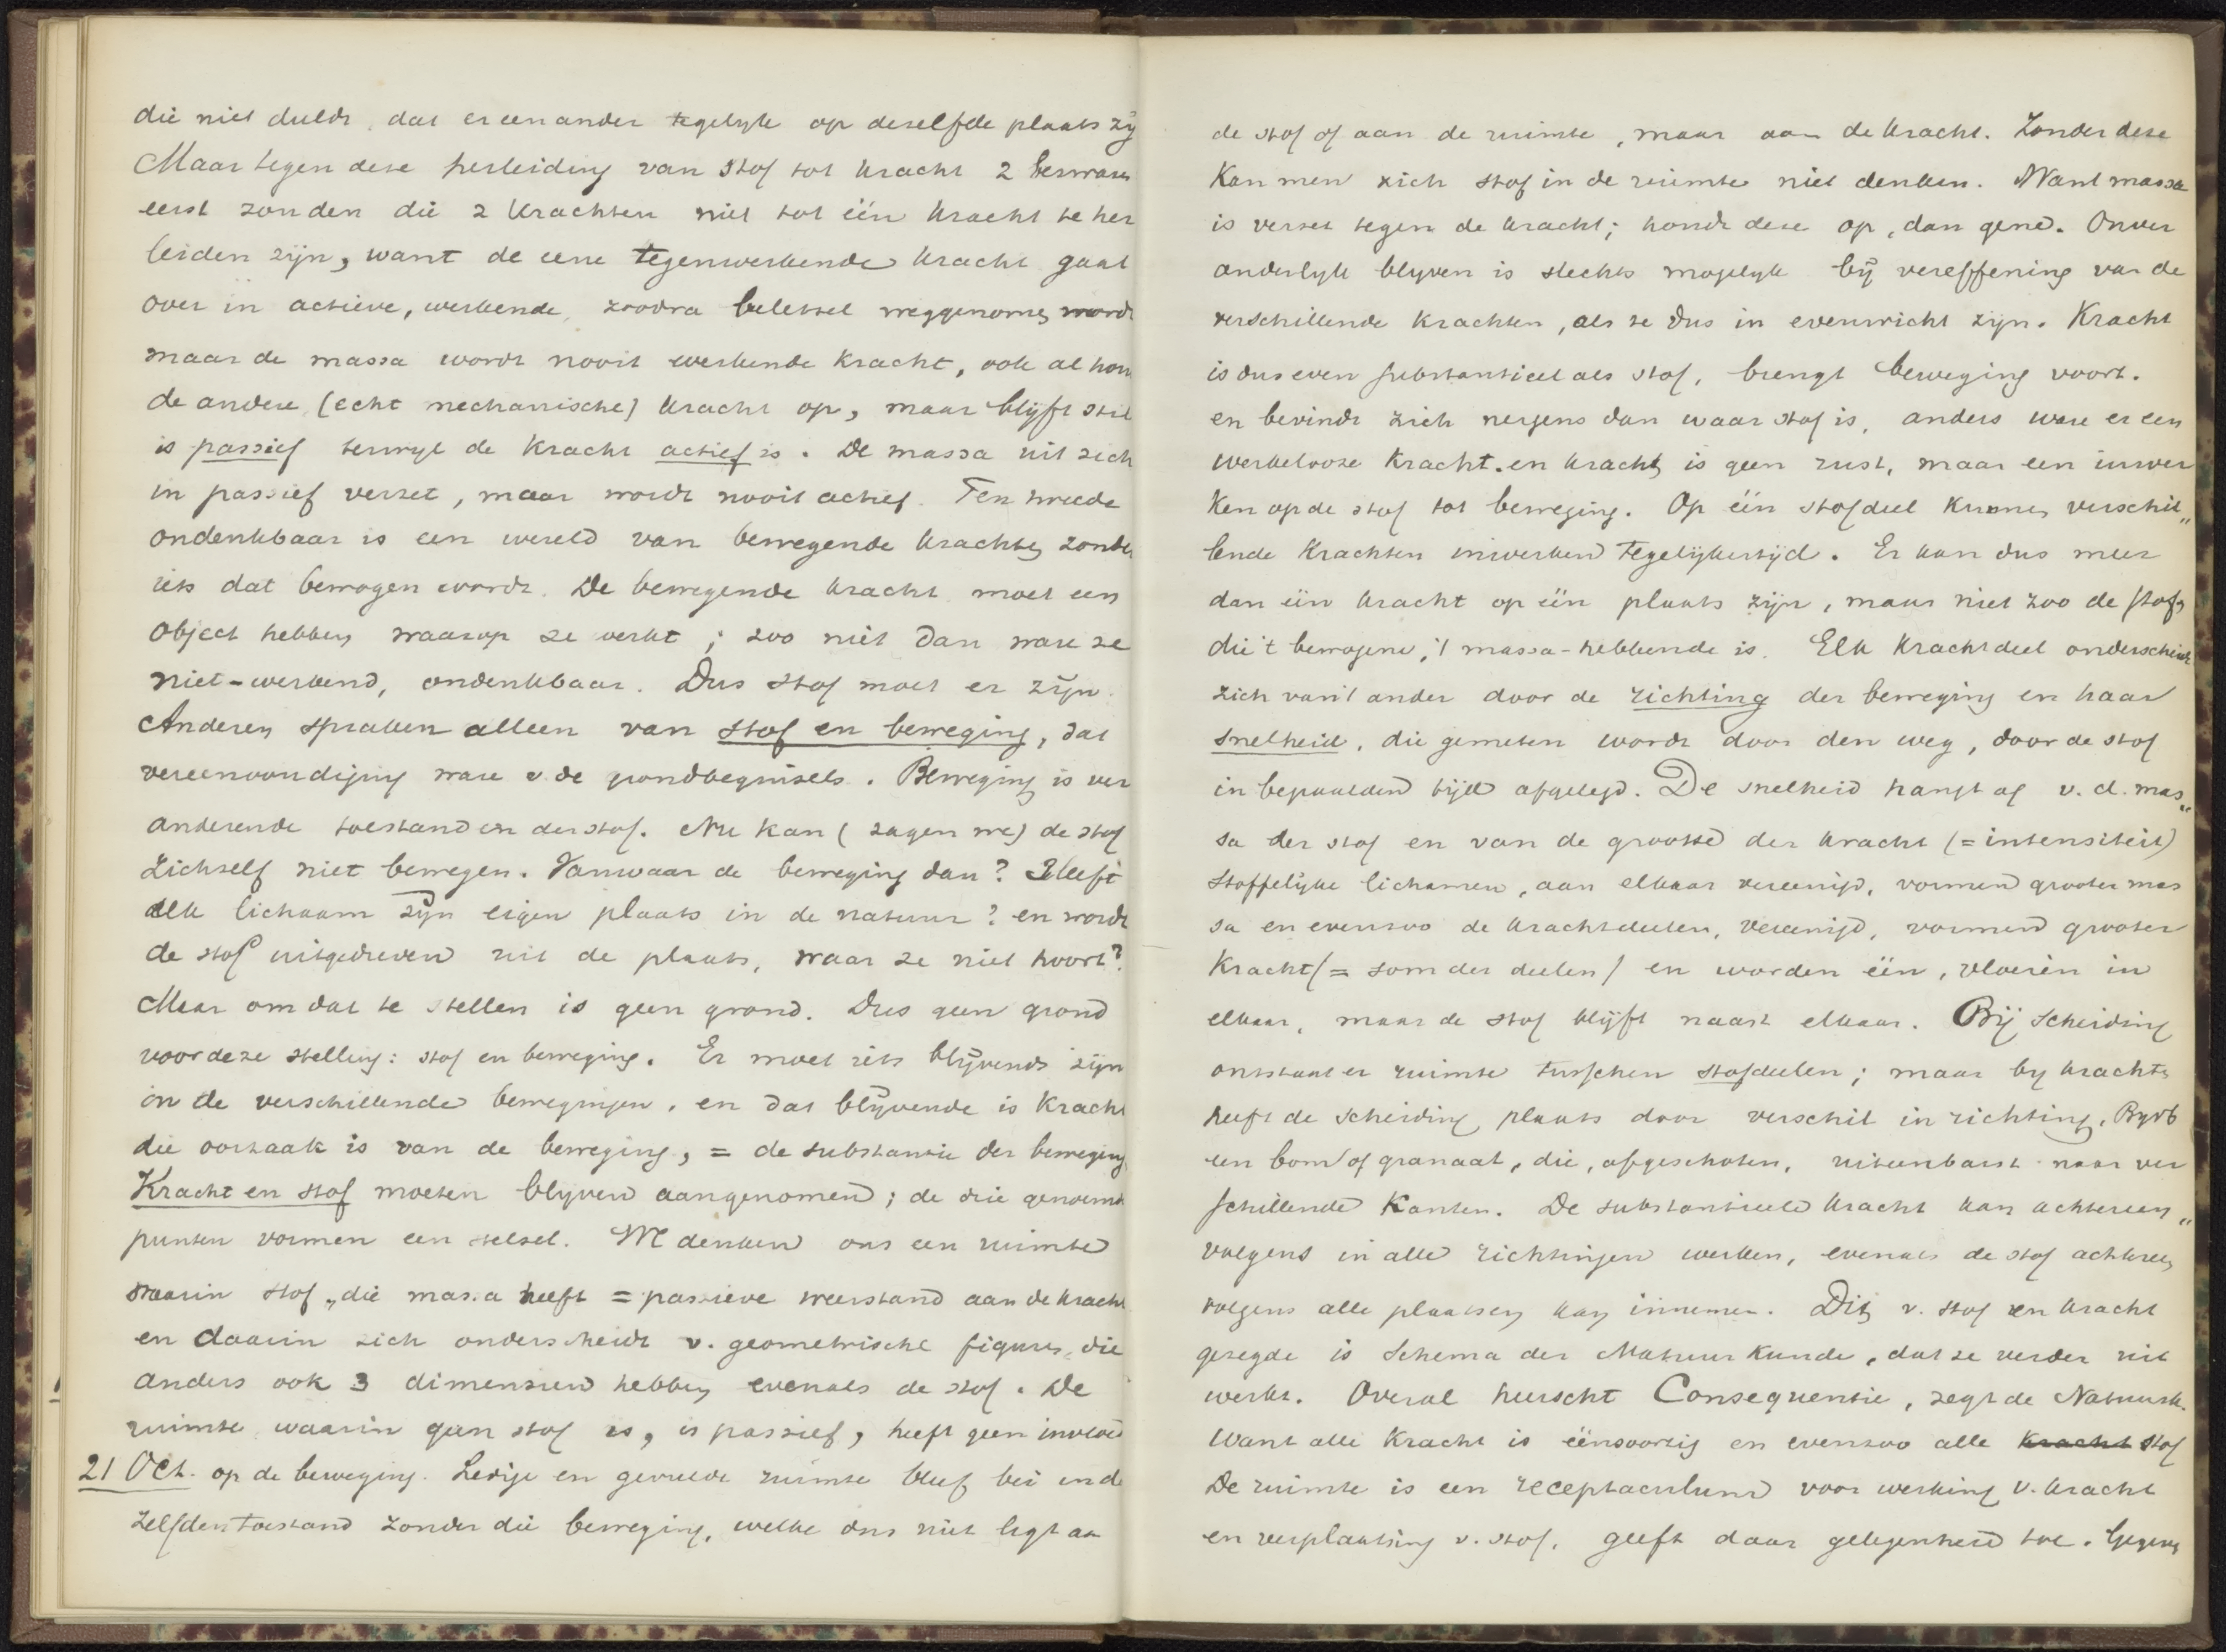 die niet duldt, dat er een ander tegelyk op deselfde plaats zij
Maar tegen dese herleiding van stof tot kracht 2 beswaren
eerst zouden die 2 krachten niet tot één kracht te her
leiden zijn, want de eene tegenwerkende kracht gaat
over in actieve, werkende, zoodra beletsel weggenomen wordt
maar de massa wordt nooit werkende kracht, ook al houdt
de andere (echt mechanische) kracht op, maar blijft stil
is passief terwyl de kracht actief is. De massa uit zich
in passief verzet, maar wordt nooit actief. Ten tweede
ondenkbaar is een wereld van bewegende krachten zonder
iets dat bewogen wordt. De bewegende kracht moet een
object hebben waarop ze werkt; zoo niet dan ware ze
niet-werkend, ondenkbaar. Dus stof moet er zijn.
Anderen spraken alleen van stof en beweging, dat
vereenvoudiging ware v de grondbeginsels. Beweging is ver
anderende toestand in der stof. Nu kan (zagen we) de stof
zichself niet bewegen. Vanwaar de beweging dan? Heeft
elk lichaam zijn eigen plaats in de natuur? en wordt
de stof uitgedreven uit de plaats, waar ze niet hoort?
Maar om dat te stellen is geen grond. Dus geen grond
voor deze stelling: stof en beweging. Er moet iets blijvends zijn
in de verschillende bewegingen, en dat blijvende is kracht
die oorzaak is van de beweging, = de substantie der beweging
Kracht en stof moeten blijven aangenomen; de drie genoemde
punten vormen een stelsel. We denken ons een ruimte
waarin stof, die massa heeft = passieve weerstand aan de kracht
en daarin zich onderscheidt v. geometrische figuren, die
anders ook 3 dimensien hebben evenals de stof. De
ruimte waarin geen stof is, is passief, heeft geen invloed
21 Oct. op de beweging. Ledige en gevulde ruimte bleef bei in de
zelfden toestand zonder die beweging, welke dus niet ligt aan
de stof of aan de ruimte, maar aan de kracht. Zonder dese
kan men zich stof in de ruimte niet denken. Want massa
is verzet tegen de kracht; houdt dese op, dan gene. Onver
anderlyk blyven is slechts mogelyk bij vereffening van de
verschillende krachten, als ze dus in evenwicht zijn. Kracht
is dus even substantieel als stof, brengt beweging voort.
en bevindt zich nergens dan waar stof is, anders ware er een
werkeloose kracht. en kracht is geen rust, maar een inwer
ken op de stof tot beweging. Op één stofdeel kunnen verschil„
lende krachten inwerken tegelijkertijd. Er kan dus meer
dan één kracht op één plaats zijn, maar niet zoo de stof,
die 't bewogene, 't massa-hebbende is. Elk krachtdeel onderscheidt
zich van 't ander door de richting der beweging en haar
snelheid, die gemeten wordt door den weg, door de stof
in bepaalden tijd afgelegd. De snelheid hangt af v. d. mas„
sa der stof en van de grootte der kracht (= intensiteit)
Stoffelijke lichamen, aan elkaar vereenigd, vormen grooter mas
sa en evenzoo de krachtdeelen, vereenigd, vormen grooter
kracht (= som der deelen) en worden één, vloeien in
elkaar, maar de stof blijft naast elkaar. Bij scheiding
ontstaat er ruimte tusschen stofdeelen; maar by kracht
heeft de scheiding plaats door verschil in richting, Byvb
een bom of granaat, die, afgeschoten, uiteenbarst naar ver
schillende kanten. De substantieele kracht kan achtereen„
volgens in alle richtingen werken, evenals de stof achtereen
volgens alle plaatsen kan innemen. Dit v. stof en kracht
gezegde is schema der Natuurkunde, dat ze verder uit
werkt. Overal heerscht Consequentie, zegt de Natuurk.
Want alle kracht is éénsoortig en evenzoo alle kracht stof
De ruimte is een receptaculum voor werking v. kracht
en verplaatsing v. stof, geeft daar gelegenheid toe. Gegeven